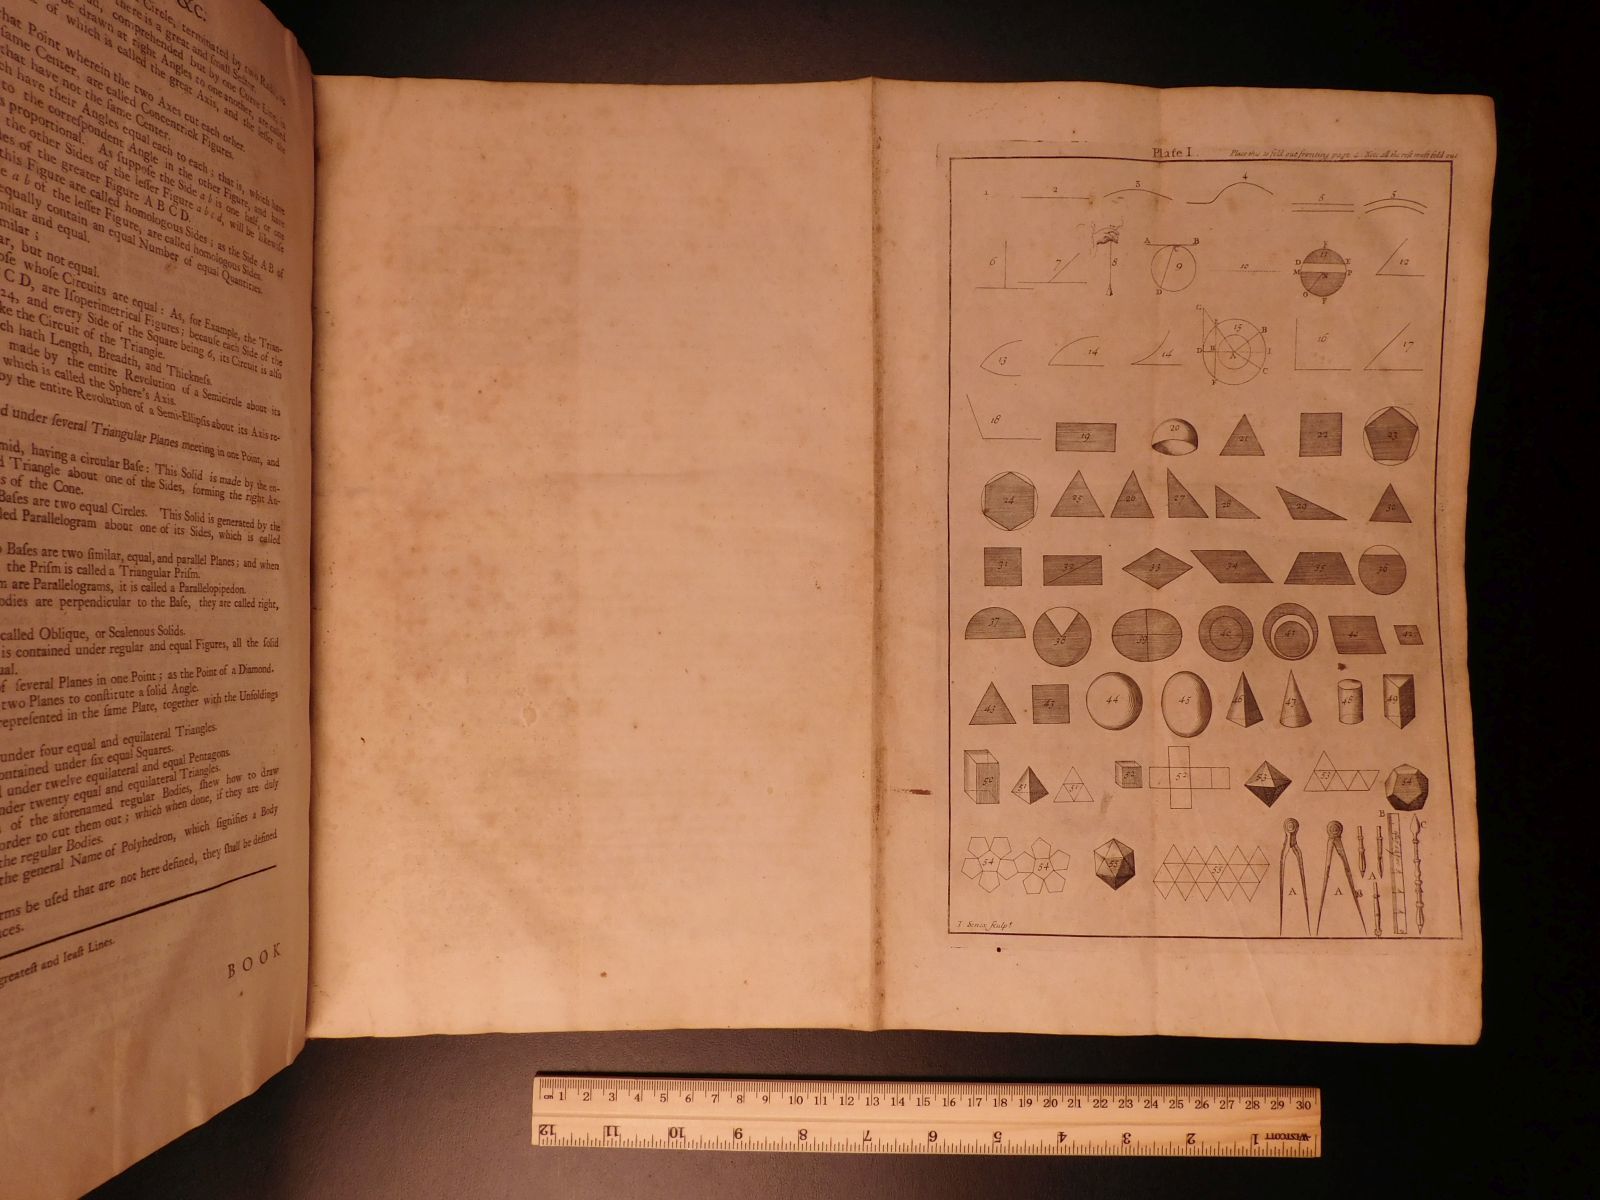 &c.
Circle, terminated by two Radius's
there is a great and small Sector.
comprehended but by one Curve Line, in
be drawn at right Angles to one another, are called
of which is called the great Axis, and the lesser the
that Point wherein the two Axes cut each other.
same Center, are called Concentrick Figures.
that have not the same Center.
ch have their Angles equal each to each; that is, which have
to the correspondent Angle in the other Figure, and have
s proportional. As suppose the Side a b is one half, or one
the other Sides of the lesser Figure a b c d, will be likewise
es of the greater Figure A B C D.
this Figure are called homologous Sides; as the Side A B of
e a b of the lesser Figure, are called homologous Sides.
equally contain an equal Number of equal Quantities.
milar and equal.
milar;
ar, but not equal.
ose whose Circuits are equal: As, for Example, the Trian-
C D, are Isoperimetrical Figures; because each Side of the
24, and every Side of the Square being 6, its Circuit is also
ke the Circuit of the Triangle.
ch hath Length, Breadth, and Thickness.
made by the entire Revolution of a Semicircle about its
which is called the Sphere's Axis.
by the entire Revolution of a Semi-Ellipsis about its Axis re-
d under several Triangular Planes meeting in one Point, and
mid, having a circular Base: This Solid is made by the en-
d Triangle about one of the Sides, forming the right An-
s of the Cone.
Bases are two equal Circles. This Solid is generated by the
led Parallelogram about one of its Sides, which is called
o Bases are two similar, equal, and parallel Planes; and when
the Prism is called a Triangular Prism.
m are Parallelograms, it is called a Parallelopipedon.
odies are perpendicular to the Base, they are called right,
called Oblique, or Scalenous Solids.
is contained under regular and equal Figures, all the solid
ual.
of several Planes in one Point; as the Point of a Diamond.
two Planes to constitute a solid Angle.
represented in the same Plate, together with the Unfoldings
under four equal and equilateral Triangles.
ontained under six equal Squares.
d under twelve equilateral and equal Pentagons.
nder twenty equal and equilateral Triangles.
s of the aforenamed regular Bodies, shew how to draw
order to cut them out; which when done, if they are duly
the regular Bodies.
the general Name of Polyhedron, which signifies a Body
rms be used that are not here defined, they shall be defined
ces.
greatest and least Lines.
BOOK
Plate I. Place this to fold out fronting page
1 2 3 4 5 5
6 7 8 A B 9 D 10 F D 11 E M P O F 12
13 14 14 G 15 B D H A I C F 16 17
18 19 20 21 22 23
24 25 26 27 28 29 30
31 32 33 34 35 36
37 38 39 40 41 42 42
43 43 44 45 46 47 48 49
50 51 51 52 52 53 53 54
54 54 55 55 A A B A B C
I. Senex sculpt
cm 1 2 3 4 5 6 7 8 9 10 11 12 13 14 15 16 17 18 19 20 21 22 23 24 25 26 27 28 29 30
12 11 10 9 8 7 6 5 4 3 2 1 WESTCOTT